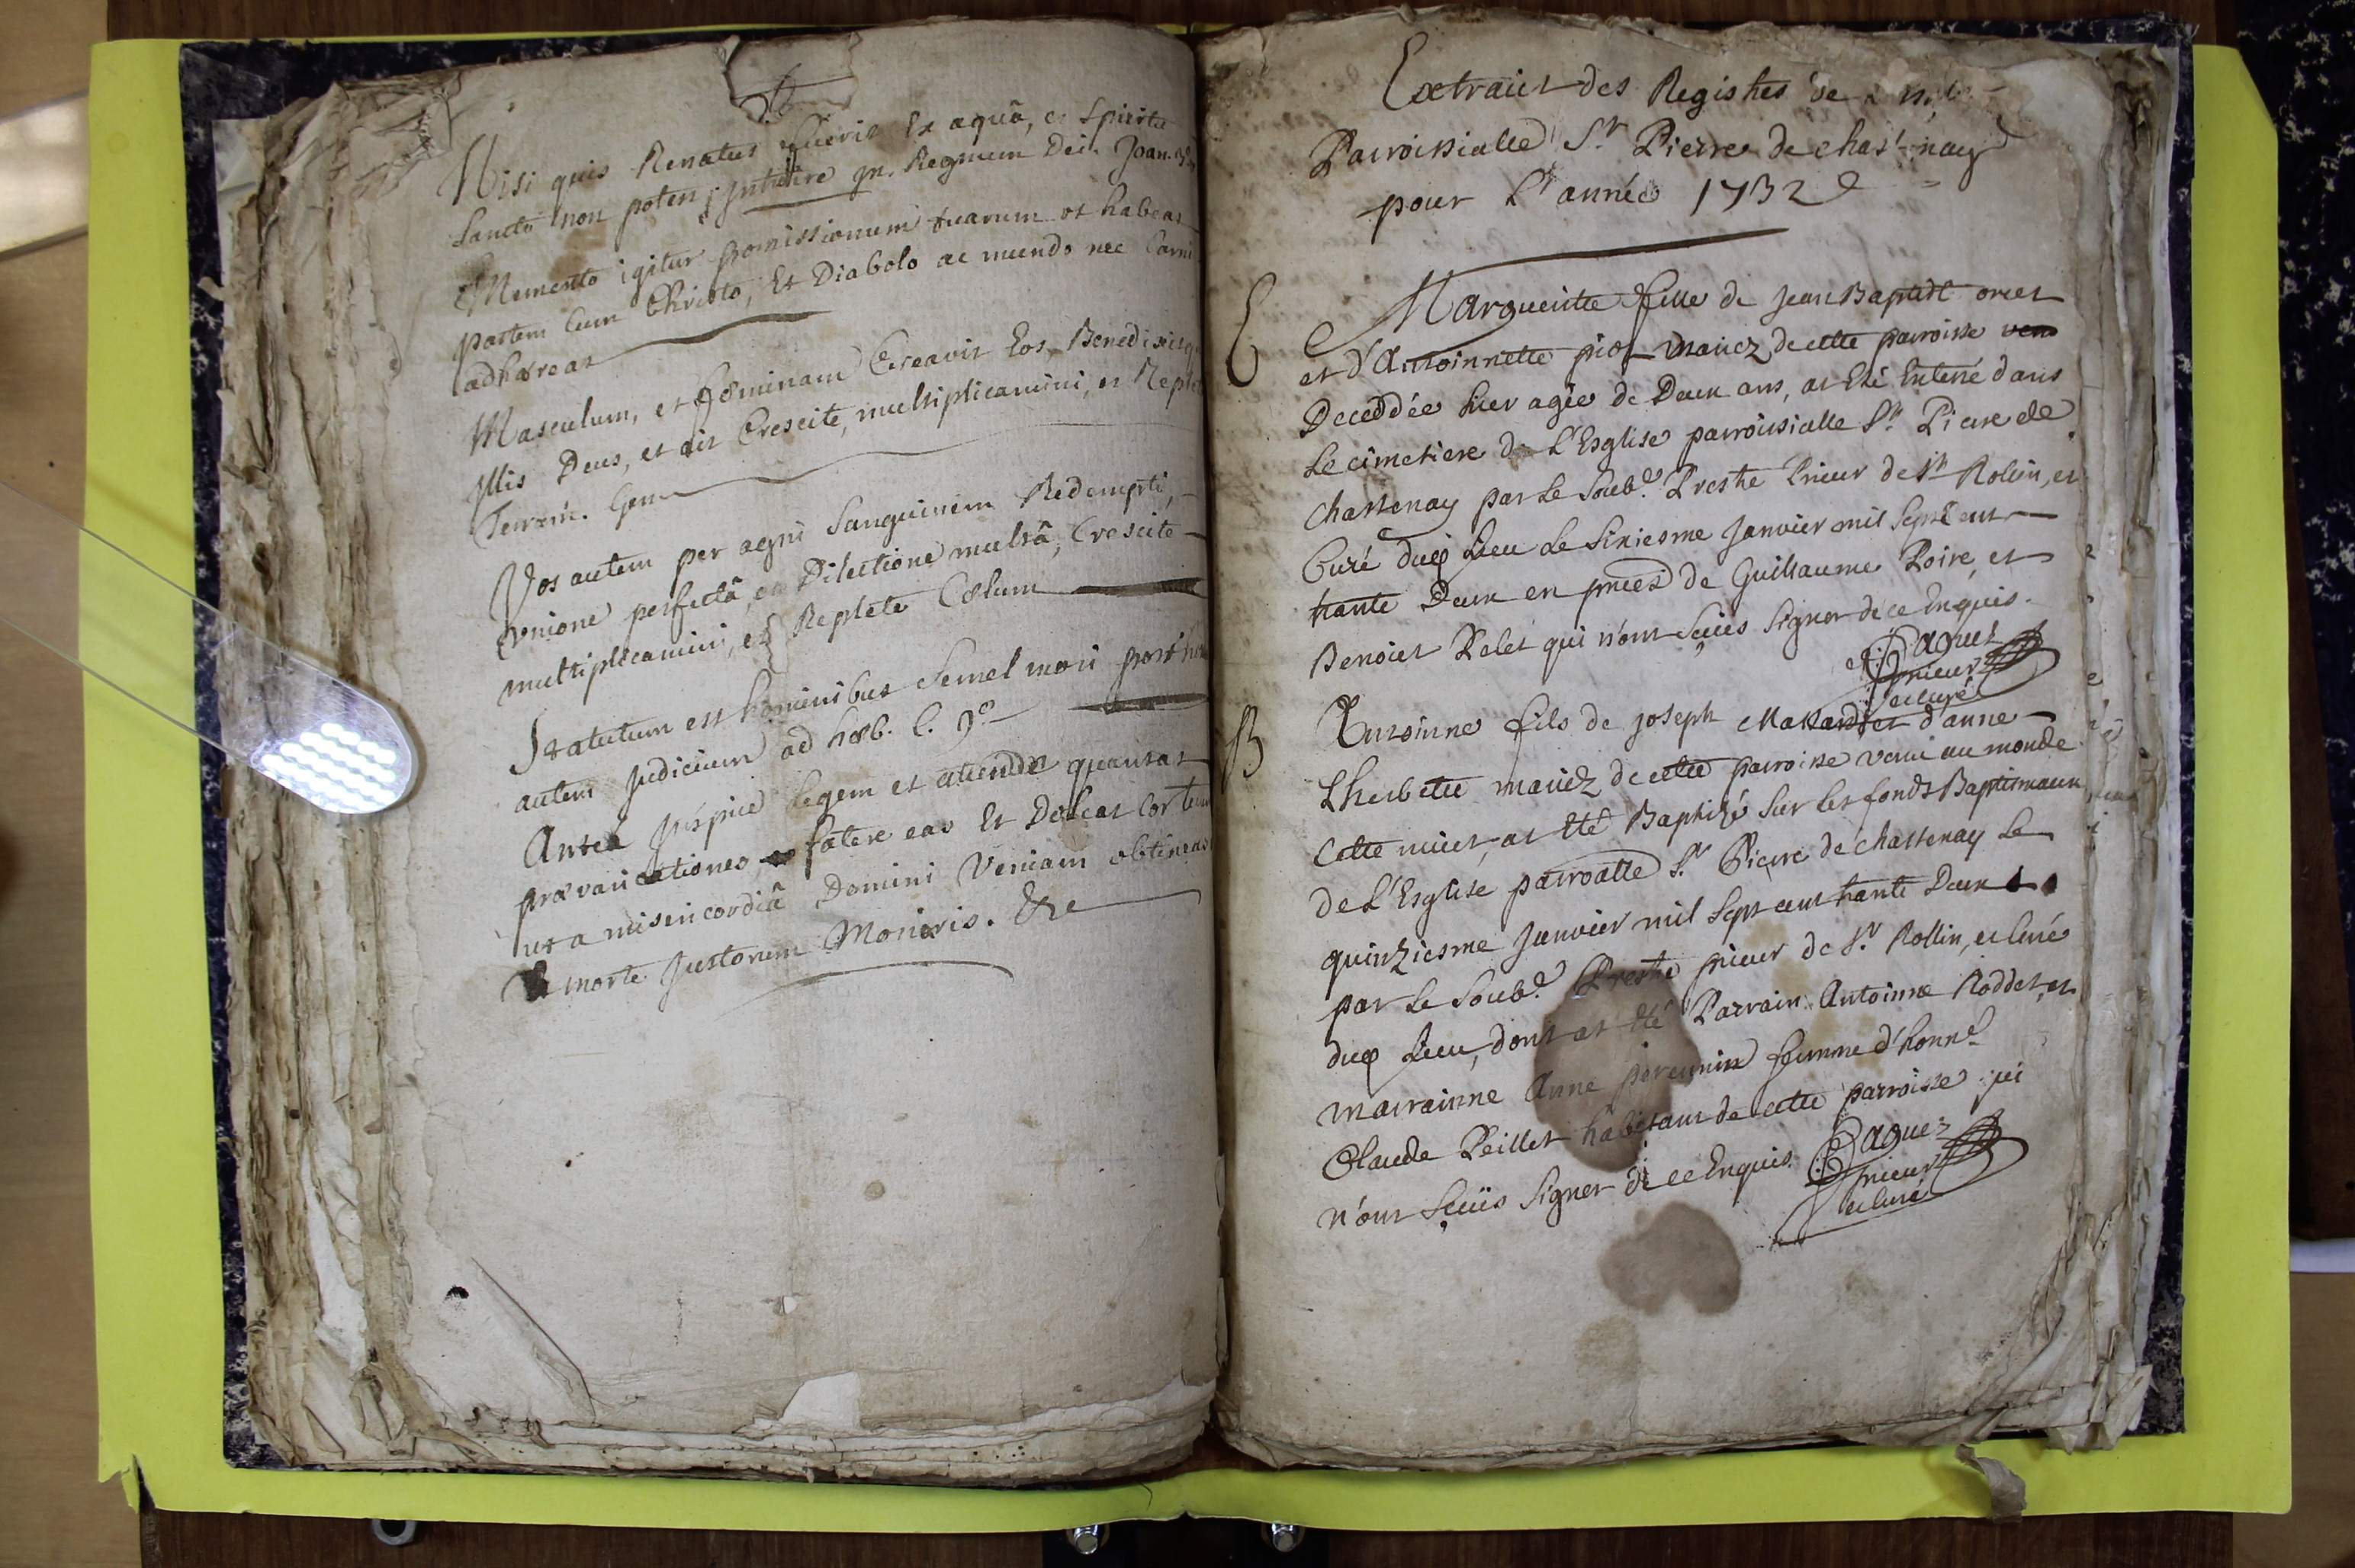 Nisi quis Renatus fuerit Ex aquâ, et Spiritu
Sancto non potest Introire In Regnum Dei. Joan. 3
Memento igitur promissionum tuarum ut habeas
partem Cum Christo, Et Diabolo ac mundo nec Carni
adhæreas
Masculum, et fœminam Creavit Eos, Benedixitq
Illis Deus, et ait Crescite, multiplicamini, et Reple
Terram. Gen
Vos autem per agni Sanguinem Redempti,
Unione perfectâ, et Dilectione multâ, Crescite
multiplicamini, et Replete Cœlum
Statutum est hominibus Semel mori post h
autem Judicium ad hæb. C. 9°
Antea Inspice legem et attende quantas
prævaricationes, fatere eas Et Doleat Cor tuum
ut a misericordiâ Domini Veniam obtineas
morte Justorum Moriaris. &c
Extraict des Registres de
Parroissialle St. Pierre de chastenay
pour L'année 1732
E
Margueritte fille de Jean Baptist
et d'Antoinnette piot mariez de cette parroisse
Deceddée hier agée de Deux ans, at Eté Enterré dans
Le cimetiere de L'Esglise parroissialle St. Pierre de
Chastenay par Le Soub.é Prestre Prieur de St Rolin, et
Curé dud Lieu Le Sixiesme Janvier mil Sept Cent
trante Deux en pnces de Guillaume Poire, et
Benoict Pelet qui n'ont Sçeus Signer de ce Enquis.
Paquet
prieur
et curé
B
Antoinne fils de joseph et d'anne
Lherbette mariez de cette parroisse venu au monde
Cette nuict, at Eté Baptizé Sur les fonds Baptismaux
de L'Esglise parroalle St. Pierre de chastenay Le
quinziesme Janvier mil Sept cent trante Deux
par Le Soub.é Prestre prieur de St. Rollin, et Curé
dud Lieu, dont at Eté Parrain Antoinne Roddet, et
marrainne Anne femme d'honn.é
Claude Peillet habitant de cette parroisse qui
n'ont Sçeüs Signer de ce Enquis. Paquet
prieur
et curé